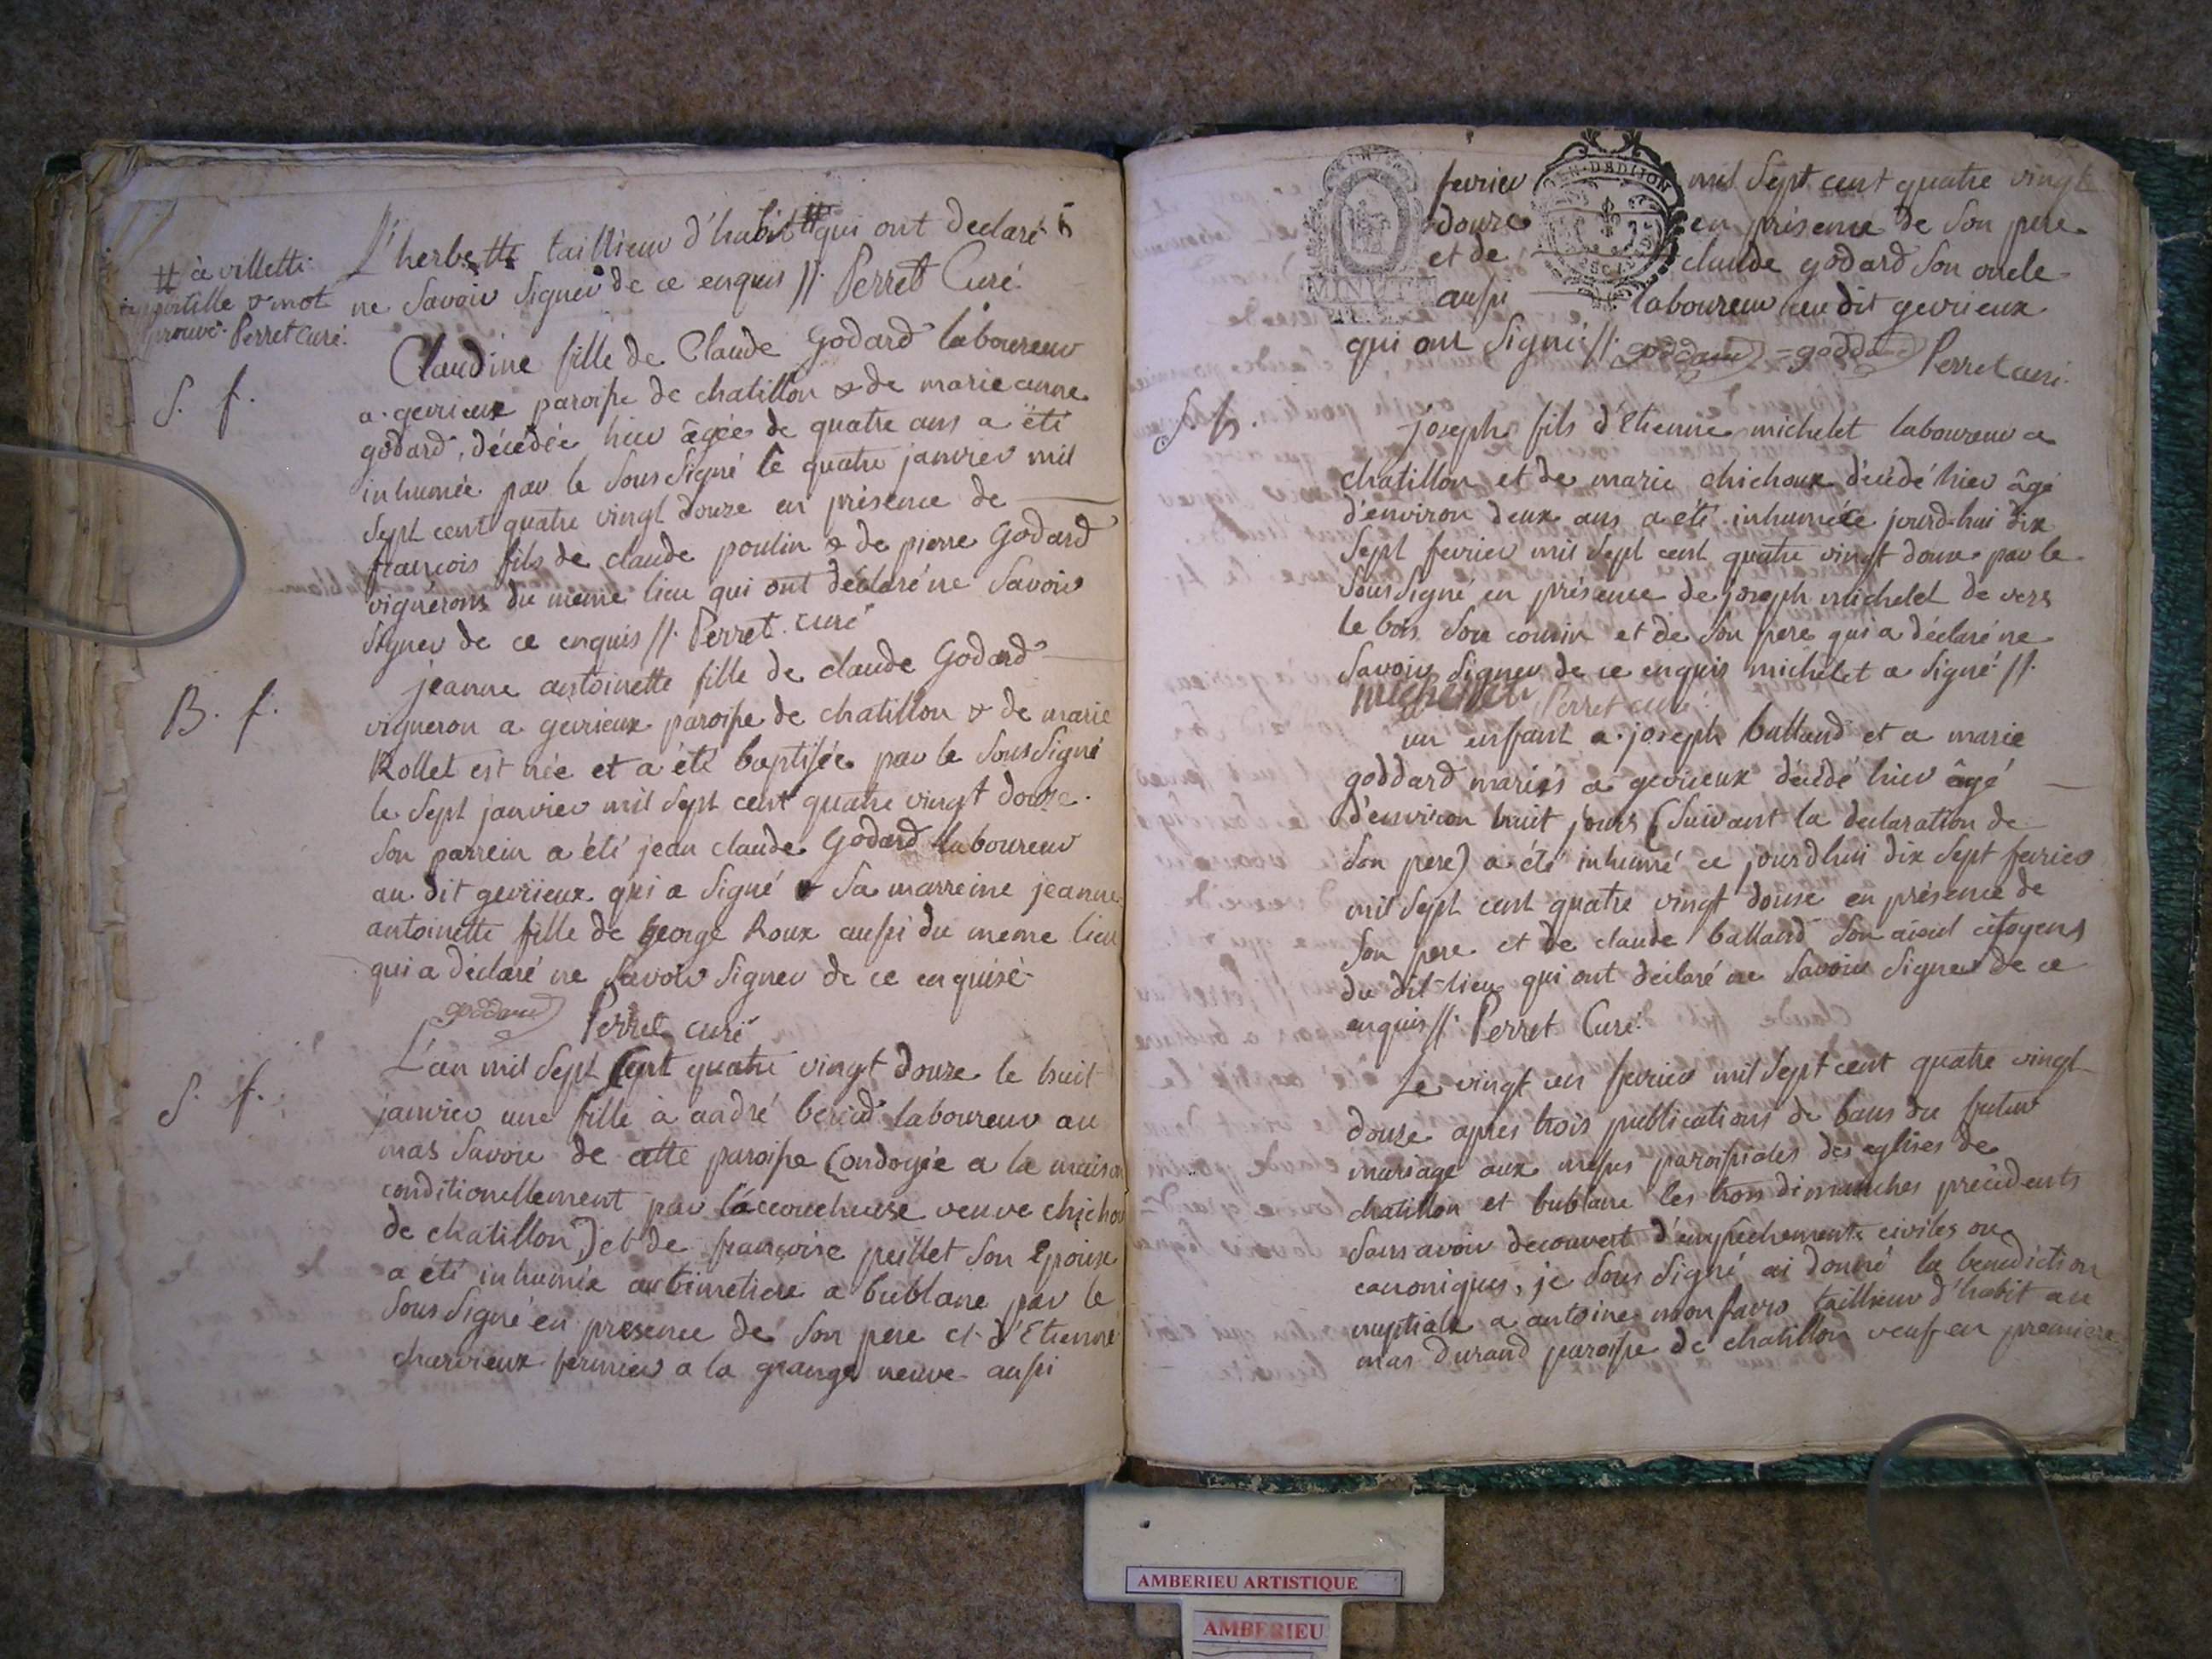 L'herbette taillieur d'habit # qui ont declaré
# à villette
apostille & mot
prouvé. Perret Curé.
ne savoir signer de ce enquis //. Perret Curé.
S. f.
Claudine fille de Claude Godard laboureur
a gevrieux paroisse de chatillon & de marie anne
godard, décédée hier âgée de quatre ans a été
inhumée par le soussigné le quatre janvier mil
sept cent quatre vingt douze en présence de
francois fils de claude poulin & de pierre Godard
vignerons du meme lieu qui ont déclaré ne savoir
signer de ce enquis //. Perret curé
B. f.
jeanne antoinette fille de claude Godard
vigneron a gévrieux paroisse de chatillon & de marie
Rollet est née et a été baptisée par le soussigné
le sept janvier mil sept cent quatre vingt douze.
son parrein a été jean claude Godard laboureur
au dit gevrieux qui a signé & sa marreine jeanne
antoinette fille de george Roux aussi du meme lieu
qui a déclaré ne savoir signer de ce enquisé
goddard Perret curé
S. f.
L'an mil sept cent quatre vingt douze le huit
janvier une fille à andré laboureur au
mas savoie de cette paroisse (ondoyée a la maison
conditionellement par l'accoucheuse veuve chichou
de chatillon) et de françoise peillet son Epouse
a été inhumée au cimetiere a bublane par le
soussigné en presence de son pere et d'Etienne
charvieux fermier a la grange neuve aussi
fevrier mil sept cent quatre vingt
douze en présence de son pere
et de claude godard son oncle
aussi laboureur au dit gevrieux
qui ont signé //. goddard = goddard Perret curé.
MINUTE
GEN. DE DIJON
S. h.
joseph fils d'Etienne michelet laboureur a
chatillon et de marie chichoux décédé hier âgé
d'environ deux ans a été inhumé ce jourd-hui dix
sept fevrier mil sept cent quatre vingt douze par le
soussigné en présence de joseph michelet de vers
le bois son cousin et de son pere qui a déclaré ne
savoir signer de ce enquis michelet a signé //.
michellet Perret curé.
un enfant a joseph balland et a marie
goddard mariés a gevrieux décédé hier âgé
d'environ huit jours (suivant la declaration de
son pere) a été inhumé ce jourdhui dix sept fevrier
mil sept cent quatre vingt douse en présence de
son pere et de claude balland son aieul citoyens
du dit-lieu qui ont déclaré ne savoir signer de ce
enquis //. Perret Curé.
Le vingt un fevrier mil sept cent quatre vingt
douze apres trois publications de bans du futur
mariage aux messes paroissiales des eglises de
chatillon et bublane les trois dimanches précédents
sans avoir decouvert d'empechements civiles ou
canoniques, je sous signé ai donné la benediction
nuptiale a antoine monfavre taillieur d'habit au
mas durand paroisse de chatillon veuf en premiere
AMBERIEU ARTISTIQUE
AMBERIEU